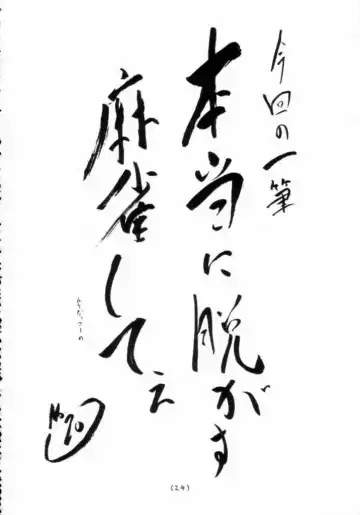 今回の一筆
本当に脱がす
麻雀してえ
(24)